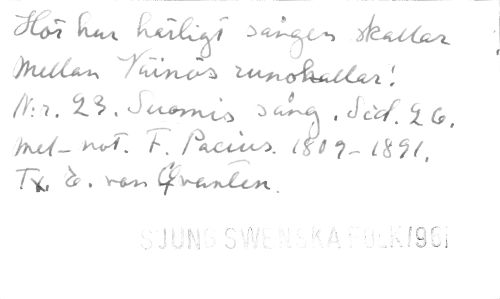 Hör hur härligt sången skallar
Mellan Väinös runohallar!
N:r. 23. Suomis sång. Sid. 26.
Mel-not. F. Pacius. 1809-1891.
Tx. E. von Qvanten.
SJUNG SWENSKA FOLK 1961